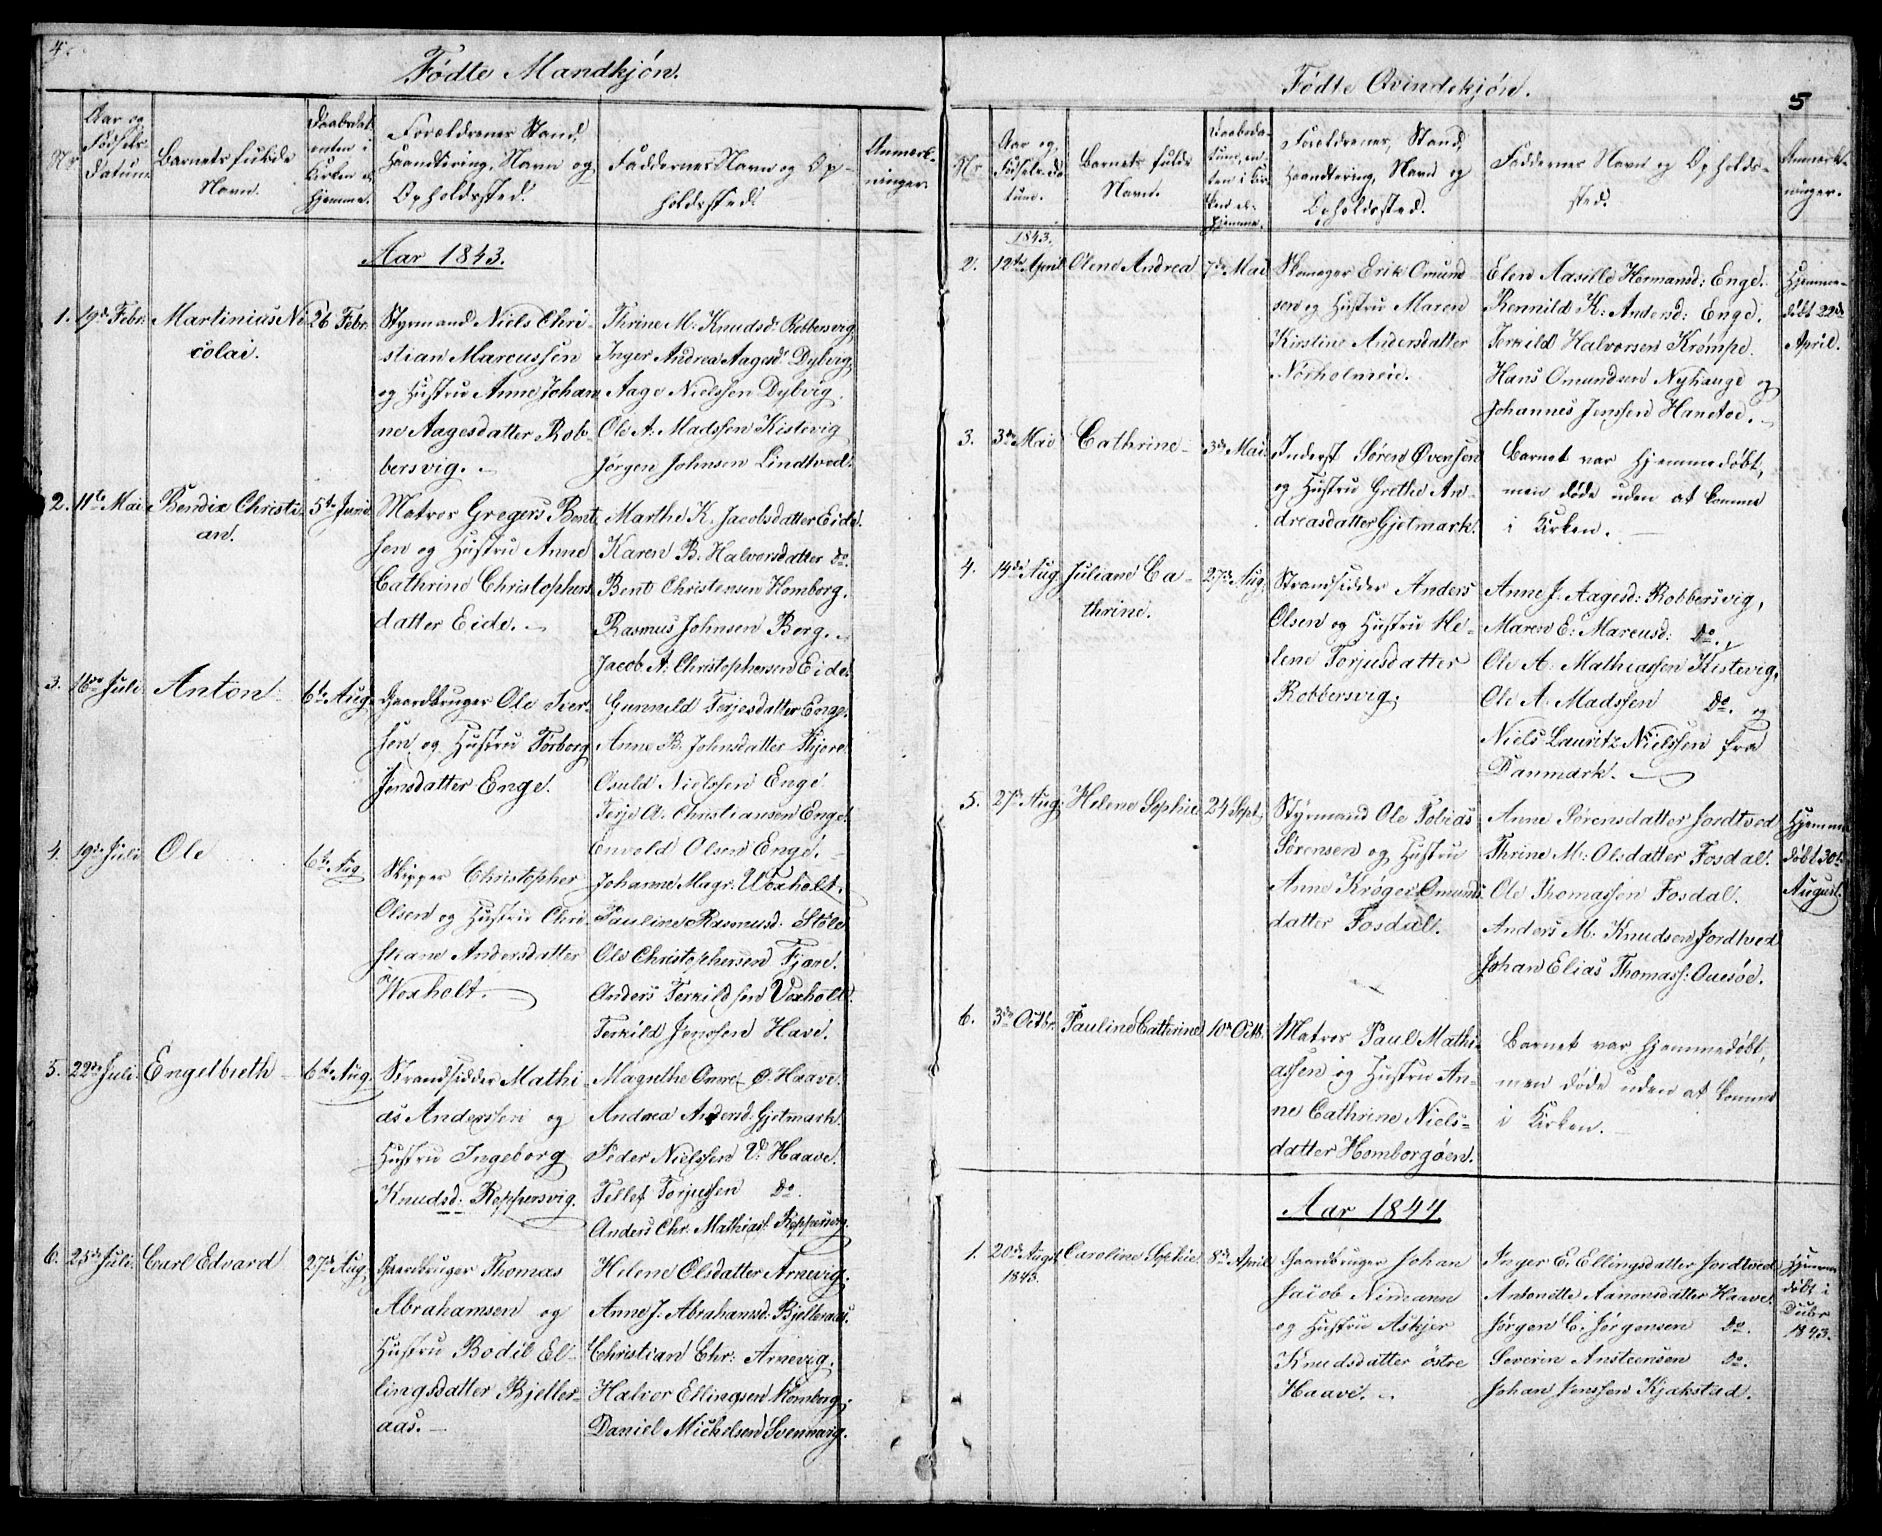 4.
Fødte Mandkjøn.
Nr
Aar og
Fødsels
Datum
Barnets fulde
Navn.
Daabsdat
enten i
Kirken el
Hjemme.
Forældrenes Stand,
Haandtering, Navn og
Opholdssted.
Faddernes Navn og Op-
holdssted.
Anmærk-
ninger.
Aar 1843.
1.
19de Febr.
Martinius Ni
colai.
26 Febr.
Styrmand Niels Chri-
stian Marcussen
og Hustru Anne Johan
ne Aagesdatter Rob-
bersvig.
Thrine M. Knudsd: Robbersvig,
Inger Andrea Aagesd Dybvig,
Aage Nielssen Dybvig.
Ole A. Madssen Kistevig
Jørgen Johnsen Lindtved.
2.
11te Mai
Bendix Christi-
an.
5te Juni
Matros Gregers Bent
sen og Hustru Anne
Cathrine Christophers
datter Eide.
Marthe K. Jacobsdatter Eide.
Karen B. Halvorsdatter do.
Bent Christensen Homborg.
Rasmus Johnsen Berg.
Jacob A. Christophersen Eide.
3.
16de Juli
Anton
6te Aug.
Gaardbruger Ole Iver-
sen og Hustru Torborg
Jensdatter Enge.
Gunnild Terjesdatter Enge.
Anne B. Johnsdatter
Osuld Nielssen Enge
Terje A. Christiansen Enge.
Envold Olsen Enge.
4.
19de Juli
Ole
6te Aug
Skipper Christopher
Olsen og Hustru Chri-
stiane Andersdatter
Woxholt.
Johanne Magr. Woxholt.
Pauline Rasmusd. Støle
Ole Christophersen Fjære.
Anders Terkildsen Voxholt.
Terkild Jenssen Have.
5.
22de Juli
Engelbreth
6te Aug.
Strandsidder Mathi-
as Anderssen og
Hustru Ingeborg
Knudsd: Roppersvig.
Magrethe Ø. Haave.
Andrea Andersd. Gjetmark.
Peder Nielssen V. Haave.
Tellef Torjussen Do.
Anders Chr. Mathias: Roppersvig.
6.
25de Juli.
Carl Edvard
27de Aug.
Gaardbruger Thomas
Abrahamsen og
Hustru Bodil El-
lingsdatter Bjeller-
aas.
Helene Olsdatter Arnevig.
Anne J. Abrahamsd. Bjelleraas.
Christian Chr: Arnevig.
Halvor Ellingsen Homborg.
Daniel Michelsen Svennevig.
Fødte Qvindekjøn.
5
Nr.
Aar og
Fødsels-da
tum.
Barnets fulde
Navn.
Daabsda-
tum, en
ten i Kir
ken el.
Hjemme.
Forældrenes, Stand,
Haandtering, Navn og
Opholdssted.
Faddernes Navn og Opholds-
sted.
Anmærk-
ninger.
1843.
2.
12te April
Olene Andrea
7de Mai
Skomager Erik Omund
sen og Hustru Maren
Kirstine Andersdatter
Nørholmeie.
Elen Aasille Hermansd: Enge.
K: Andersd: Enge.
Terkild Halvorsen Krømpe.
Hans Omundsen Nyhauge og
Johannes Jenssen Hanstoe.
Hjemme-
døbt 22de
April.
3.
3de Mai
Cathrine
3de Mai.
Inderst Søren Øvensen
og Hustru Grethe An-
dreasdatter Gjetmark.
Barnet var hjemmedøbt,
men døde uden at komme
i Kirken.
4.
14de Aug.
Juliane Ca-
thrine.
27de Aug.
Strandsidder Anders
Olsen og Hustru He-
lene Torjusdatter
Robbersvig.
Anne J. Aagesd: Robbersvig,
Maren E: Marcusd: Do.
Ole A. Mathiassen Kistevig,
Ole A. Madssen Do. og
Niels Lauritz Nielssen fra
Danmark.
5.
27de Aug.
Helene Sophie
24 Sept.
Styrmand Ole Tobias
Sørensen og Hustru
Anne Krøger Omunds
datter Fosdal.
Anne Sørensdatter Jordtved
Thrine M: Olsdatter Fosdal.
Ole Thomassen Fosdal.
Anders M. Knudsen Jordtved
Johan Elias Thomass: Quesøe.
Hjemme
døbt 30te
August.
6.
3de Octbr.
Pauline Cathrine
10de Octb.
Matros Paul Mathi-
assen og Hustru An-
ne Cathrine Niels-
datter Homborgøen.
Barnet var hjemmedøbt,
men døde uden at komme
i Kirken.
Aar 1844.
1.
20de Augst
1843.
Caroline Sophie
8de April
Gaardbruger Johan
Jacob Nimann
og Hustru Askjer
Knudsdatter østre
Haave.
Inger E. Ellingsdatter Jordtved
Antonette Aanonsdatter Haave.
Jørgen C. Jørgensen Do.
Severin Ansteensen Do.
Johan Jenssen Kjækstad.
Hjemme
døbt i
Decbr
1843.